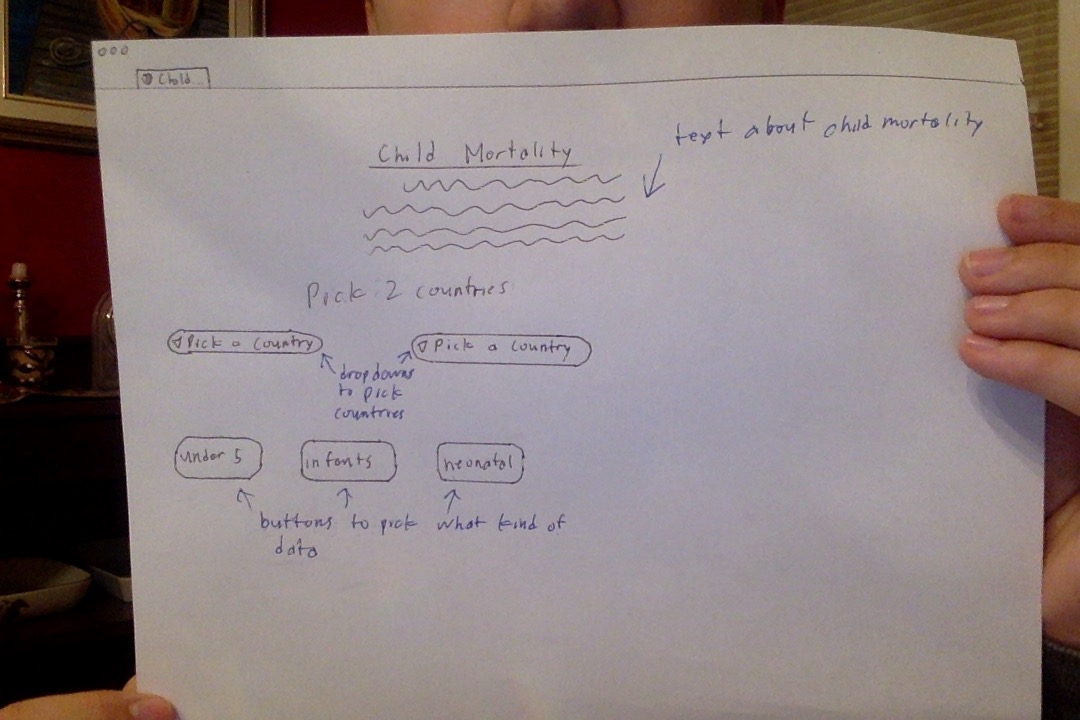 Child...
Child Mortality
text about child mortality
Pick 2 countries
Pick a Country
Pick a Country
dropdowns
to pick
countries
under 5
infants
neonatal
buttons to pick what kind of
data